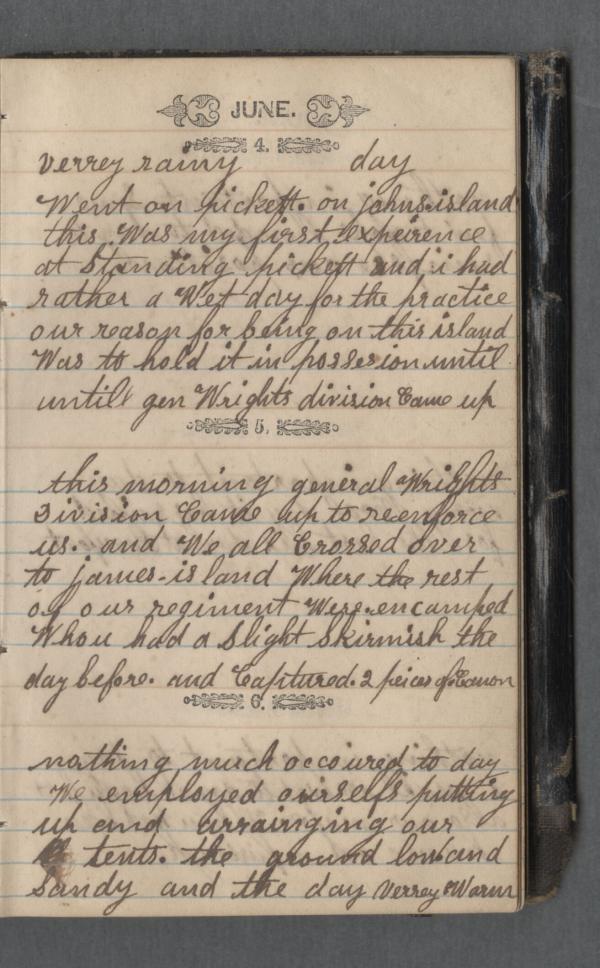 JUNE.
4.
verrey rainy day
Went on pickett. on johns-island
this Was my first expeirence
at Standing pickett and i had
rather a Wet day for the practice
our reason for being on this island
Was to hold it in possesion until
until gen Wrights division Came up
5.
this morning general Wrights
Division Came up to reenforce
us. and We all Crossed over
to james-island Where the rest
of our regiment Were encamped
Whou had a Slight Skirmish the
day before. and Captured. 2 peices of Canon
6.
nothing much occoured to day
We employed ourselfs putting
up and arrainging our
tents. the ground low and
Sandy and the day verrey Warm